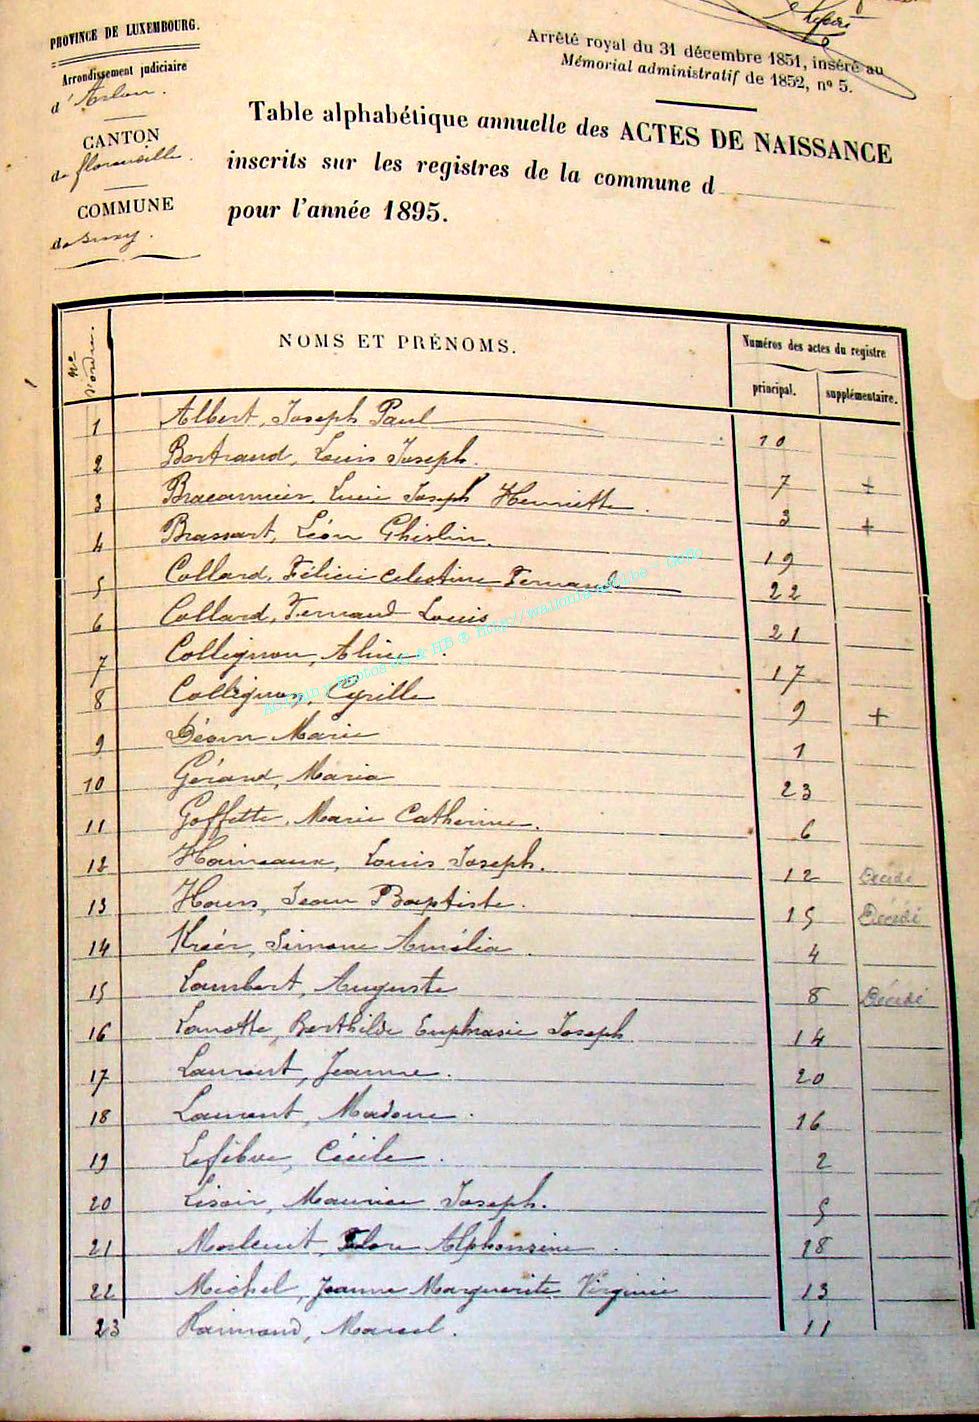 PROVINCE DE LUXEMBOURG.
Arrondissement judiciaire
d'Arlon.
CANTON
de florenville.
COMMUNE
de Suxy.
Arrêté royal du 31 décembre 1851, inséré au
Mémorial administratif de 1852, nº 5.
Table alphabétique annuelle des ACTES DE NAISSANCE
inscrits sur les registres de la commune d
pour l'année 1895.
Nº d'ordre. NOMS ET PRÉNOMS. Numéros des actes du registre
principal. supplémentaire.
1 Albert, Joseph Paul 10
2 Bertrand, Louis Joseph. 7 +
3 Braconnier, Lucie Joseph Henriette. 3 +
4 Brassart, Léon Ghislin. 19
5 Collard, Félicie Celestine Fernande 22
6 Collard, Fernand Louis 21
7 Collignon, Aline. 17
8 Collignon, Cyrille 9 +
9 Déom Marie 1
10 Gérard, Maria 23
11 Goffette, Marie Catherine. 6
12 Haineaux, Louis Joseph. 12 Décédé
13 Hours, Jean Baptiste. 15 Décédé
14 Kréér, Simone Amélia. 4
15 Lambert, Auguste 8 Décédé
16 Lamotte, Berthilde Euphrasie Joseph 14
17 Laurent, Jeanne. 20
18 Laurent, 16
19 Lefèbve, Cécile. 2
20 Lisoir, Maurice Joseph. 5
21 Flore Alphonsine. 18
22 Michel, Jeanne Marguerite Virginie 13
23 Raimond, Marcel. 11